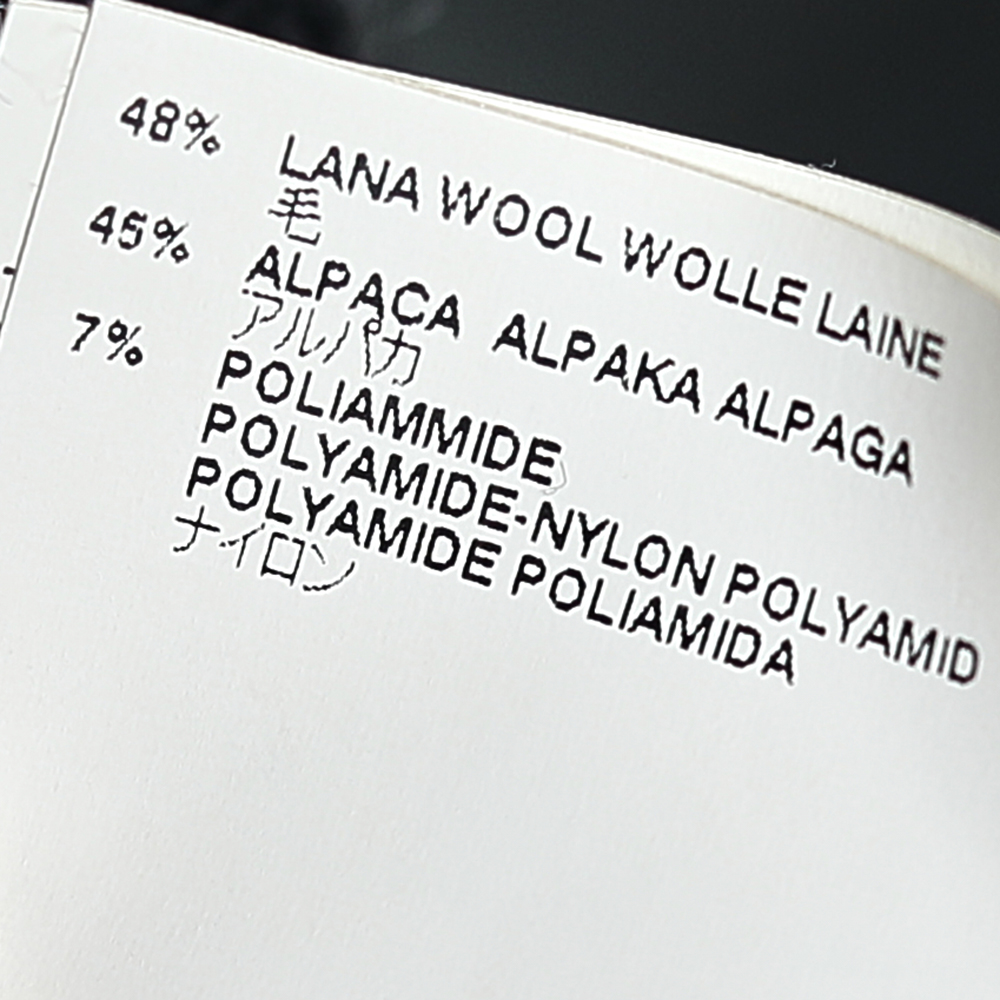 48% LANA WOOL WOLLE LAINE
毛
45% ALPACA ALPAKA ALPAGA
アルパカ
7% POLIAMMIDE
POLYAMIDE-NYLON POLYAMID
POLYAMIDE POLIAMIDA
ナイロン